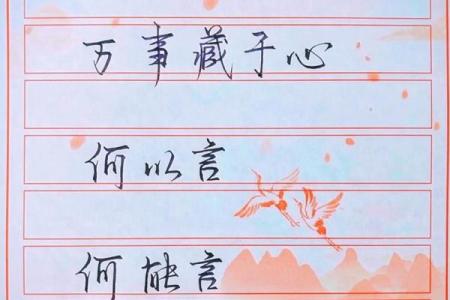 万事藏于心
何以言
何能言